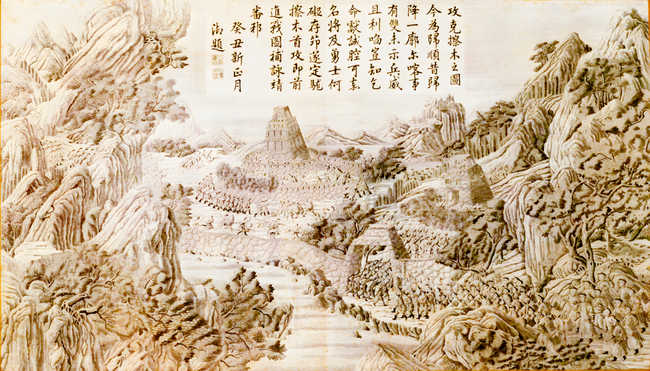 攻克擦木之圖
今為歸順昔歸
降一廓尔喀事
有雙未示兵威
且利啗豈知乞
命獻誠腔可嘉
名將及勇士何
礙存茆遂定駹
擦木首攻即前
進我圖補詠靖
番邦
癸丑新正月
御題